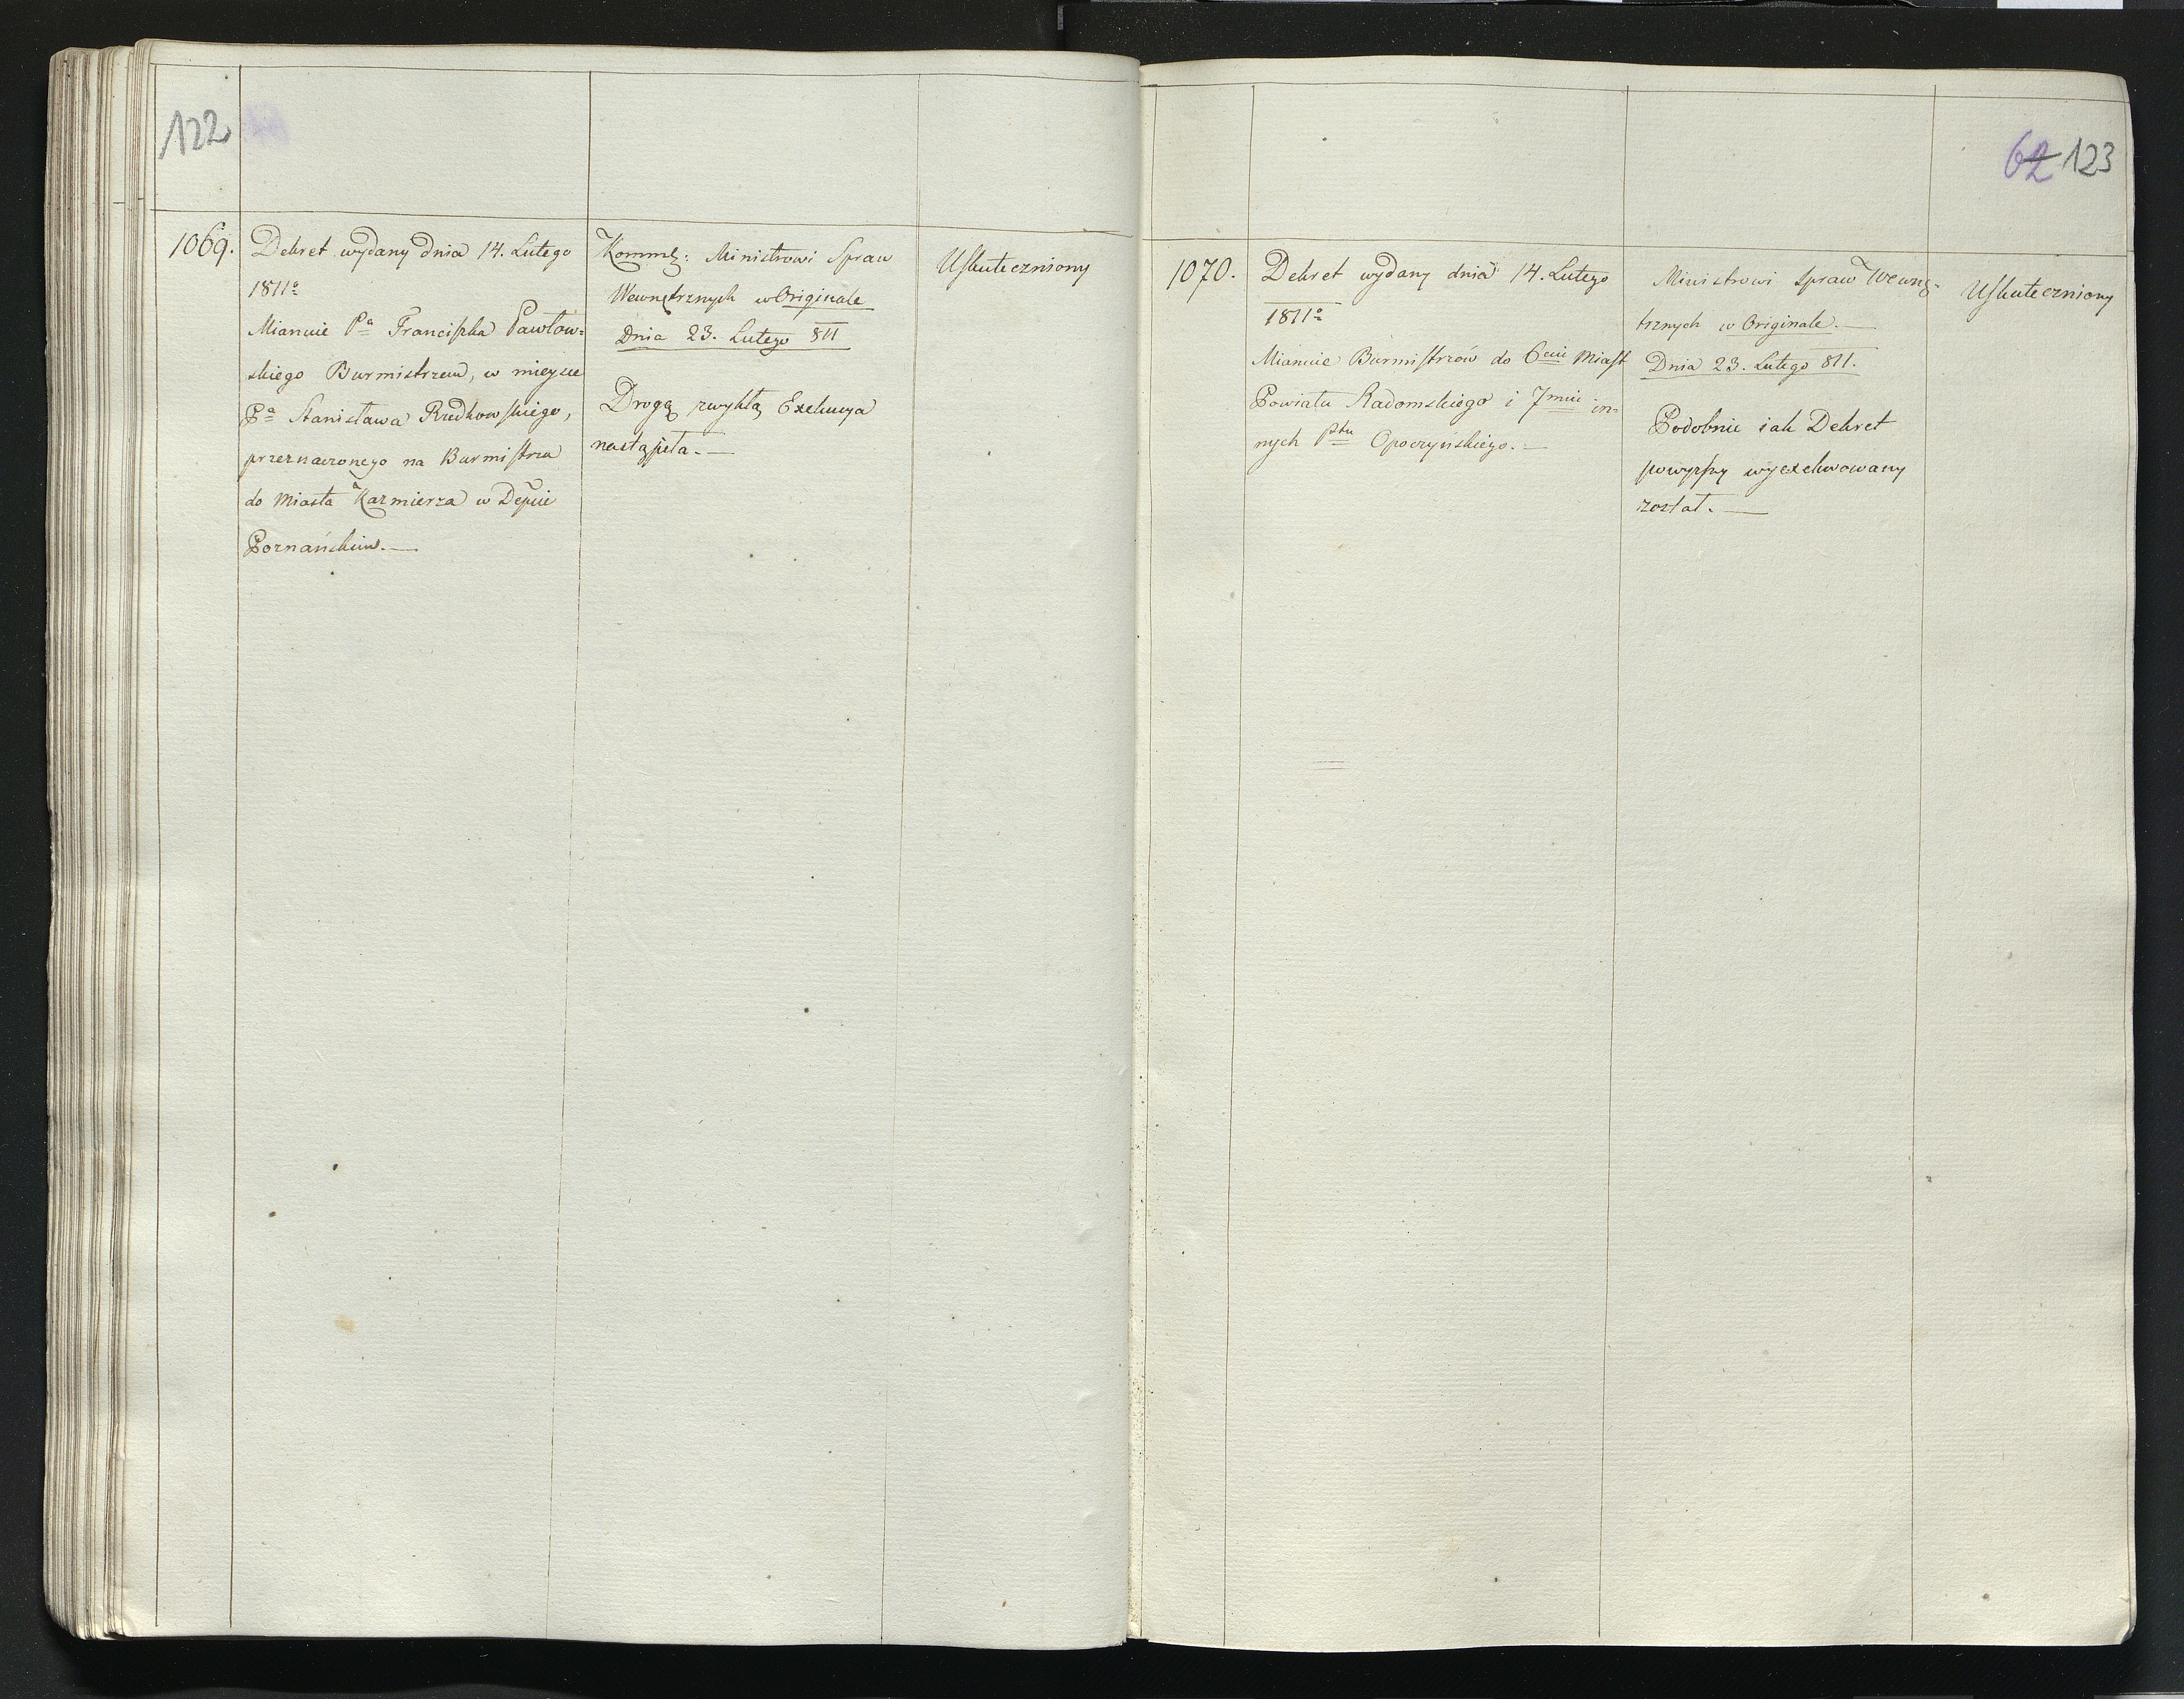 122
1069.
Dekret wydany dnia 14. Lutego
1811º
Mianuie Pª Franciszka Pawłow=
skiego Burmistrzem, w mieysce
Pª Stanisława Rudkowskiego,
przeznaczonego na Burmistrza
do Miasta Kazmierza w Depcie
Poznańskim.—
Kommk: Ministrowi Spraw
Wewnętrznych w Originale
Dnia 23. Lutego 811
Drogą zwykłą Exekucya
nastąpiła.—
Uskuteczniony
62 123
1070.
Dekret wydany dnia 14. Lutego
1811º
Mianuie Burmistrzów do 6ciu Miast
Powiatu Radomskiego i 7miu in=
nych Pttu Opoczyńskiego.—
Ministrowi Spraw Wewnę=
trznych w Originale.—
Dnia 23. Lutego 811.
Podobnie iak Dekret
powyższy wyexekwowany
został.—
Uskuteczniony